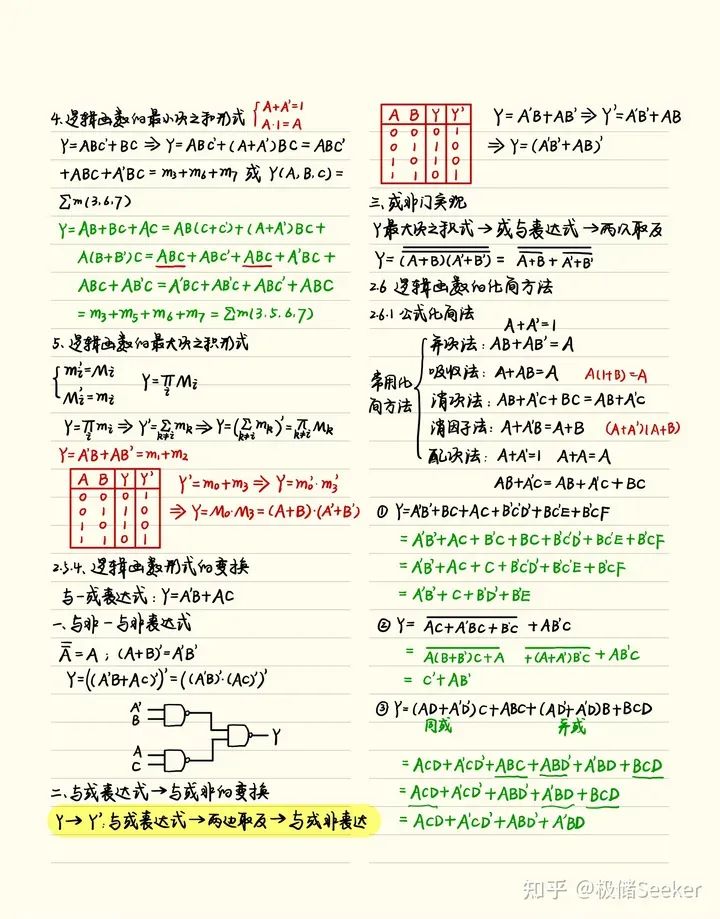 4.逻辑函数的最小项之和形式 { A+A'=1
A·1=A
Y=ABC'+BC ⇒ Y=ABC'+(A+A')BC=ABC'
+ABC+A'BC=m₃+m₆+m₇ 或 Y(A,B,C)=
Σm(3,6,7)
Y=AB+BC+AC=AB(C+C')+(A+A')BC+
A(B+B')C=ABC+ABC'+ABC+A'BC+
ABC+AB'C=A'BC+AB'C+ABC'+ABC
=m₃+m₅+m₆+m₇=Σm(3,5,6,7)
5.逻辑函数的最大项之积形式
{ mᵢ'=Mᵢ
Mᵢ'=mᵢ
Y=∏ᵢMᵢ
Y=∏ᵢmᵢ ⇒ Y'=Σₖ≠ᵢmₖ ⇒ Y=(Σₖ≠ᵢmₖ)'=∏ₖ≠ᵢMₖ
Y=A'B+AB'=m₁+m₂
A B Y Y'
0 0 0 1
0 1 1 0
1 0 1 0
1 1 0 1
Y'=m₀+m₃ ⇒ Y=m₀'·m₃'
⇒ Y=M₀·M₃=(A+B)·(A'+B')
2.5.4.逻辑函数形式的变换
与-或表达式:Y=A'B+AC
一.与非-与非表达式
A̿=A;(A+B)'=A'B'
Y=((A'B+AC)')'=((A'B)'·(AC)')'
A'
B
A
C
Y
二.与或表达式→与或非的变换
Y→Y':与或表达式→两边取反→与或非表达
A B Y Y'
0 0 0 1
0 1 1 0
1 0 1 0
1 1 0 1
Y=A'B+AB' ⇒ Y'=A'B'+AB
⇒ Y=(A'B'+AB)'
三.或非门实现
Y最大项之积式→或与表达式→两次取反
Y=¬¬((A+B)(A'+B'))=¬(¬(A+B)+¬(A'+B'))
2.6 逻辑函数的化简方法
2.6.1 公式化简法
A+A'=1
常用化
简方法
并项法:AB+AB'=A
吸收法:A+AB=A A(1+B)=A
消项法:AB+A'C+BC=AB+A'C
消因子法:A+A'B=A+B (A+A')(A+B)
配项法:A+A'=1 A+A=A
AB+A'C=AB+A'C+BC
① Y=A'B'+BC+AC+B'C'D'+BC'E+B'CF
=A'B'+AC+B'C+BC+B'C'D'+BC'E+B'CF
=A'B'+AC+C+B'C'D'+BC'E+B'CF
=A'B'+C+B'D'+B'E
② Y=¬(AC+A'BC+B'C)+AB'C
=¬(A(B+B')C+A +(A+A')B'C)+AB'C
=C'+AB'
③ Y=(AD+A'D')C+ABC+(AD'+A'D)B+BCD
同或 异或
=ACD+A'CD'+ABC+ABD'+A'BD+BCD
=ACD+A'CD'+ABD'+A'BD+BCD
=ACD+A'CD'+ABD'+A'BD
知乎 @极储Seeker